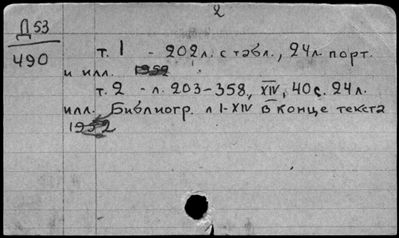 2
Д 53
490
т. 1 - 202 л. с табл., 24 л. порт.
и илл. 1952
т. 2 - л. 203-358, XIV, 40 с. 24 л.
илл. Библиогр. л I-XIV в конце текста
1952